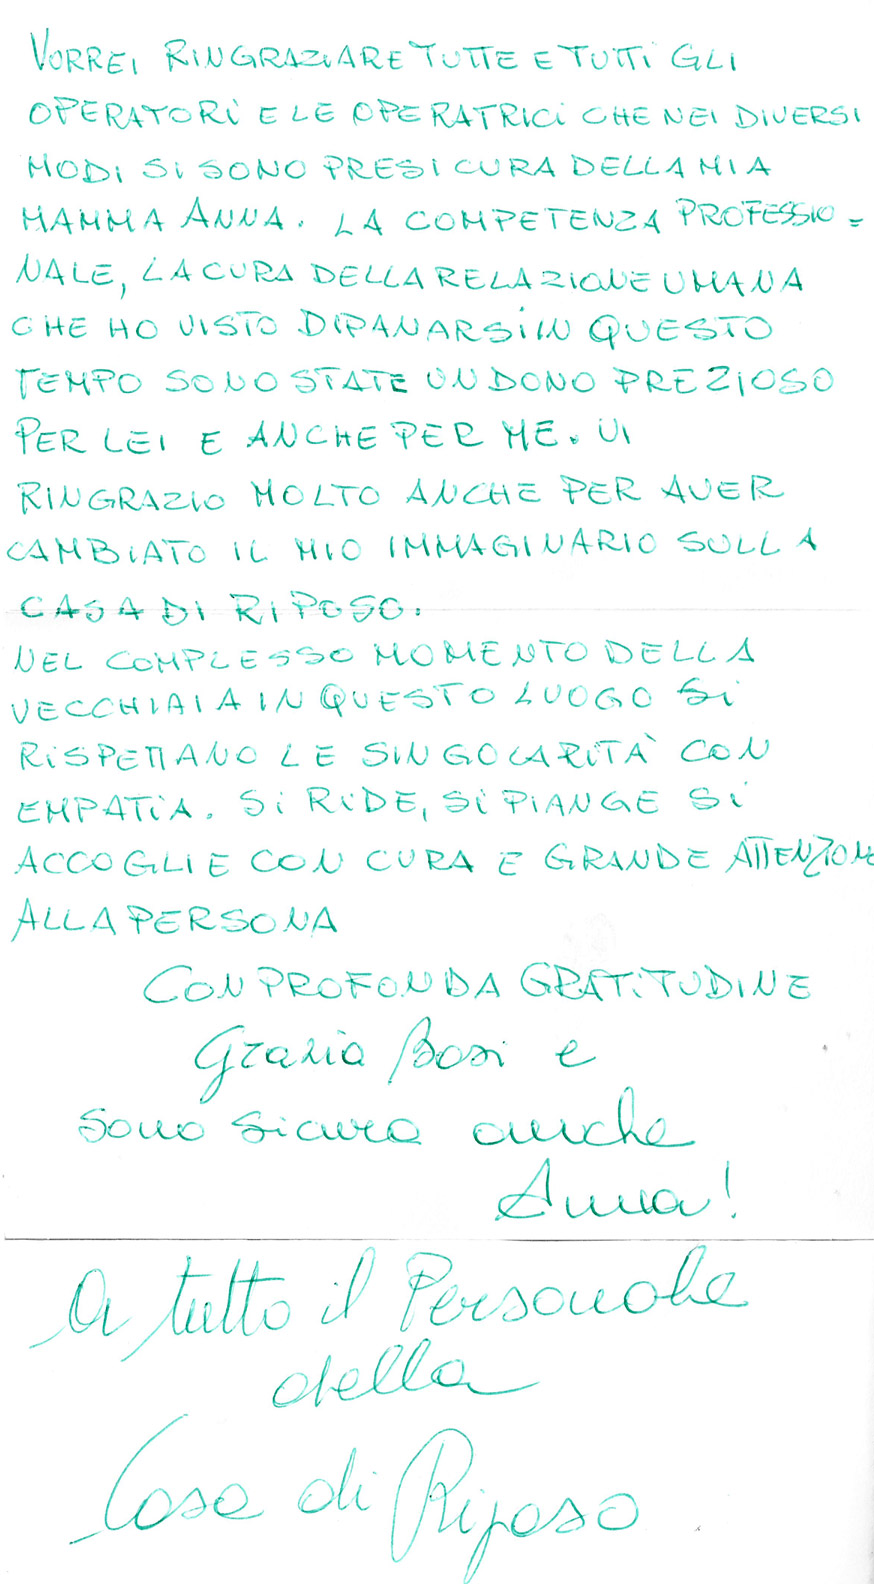 VORREI RINGRAZIARE TUTTE E TUTTI GLI
OPERATORI E LE OPERATRICI CHE NEI DIVERSI
MODI SI SONO PRESI CURA DELLA MIA
MAMMA ANNA. LA COMPETENZA PROFESSIO=
NALE, LA CURA DELLA RELAZIONE UMANA
CHE HO VISTO DIPANARSI IN QUESTO
TEMPO SONO STATE UN DONO PREZIOSO
PER LEI E ANCHE PER ME. VI
RINGRAZIO MOLTO ANCHE PER AVER
CAMBIATO IL MIO IMMAGINARIO SULLA
CASA DI RIPOSO.
NEL COMPLESSO MOMENTO DELLA
VECCHIAIA IN QUESTO LUOGO SI
RISPETTANO LE SINGOLARITÀ CON
EMPATIA. SI RIDE, SI PIANGE SI
ACCOGLIE CON CURA E GRANDE ATTENZIONE
ALLA PERSONA
CON PROFONDA GRATITUDINE
Grazia Bosi e
sono sicura anche
Anna!
A tutto il Personale
della
Casa di Riposo